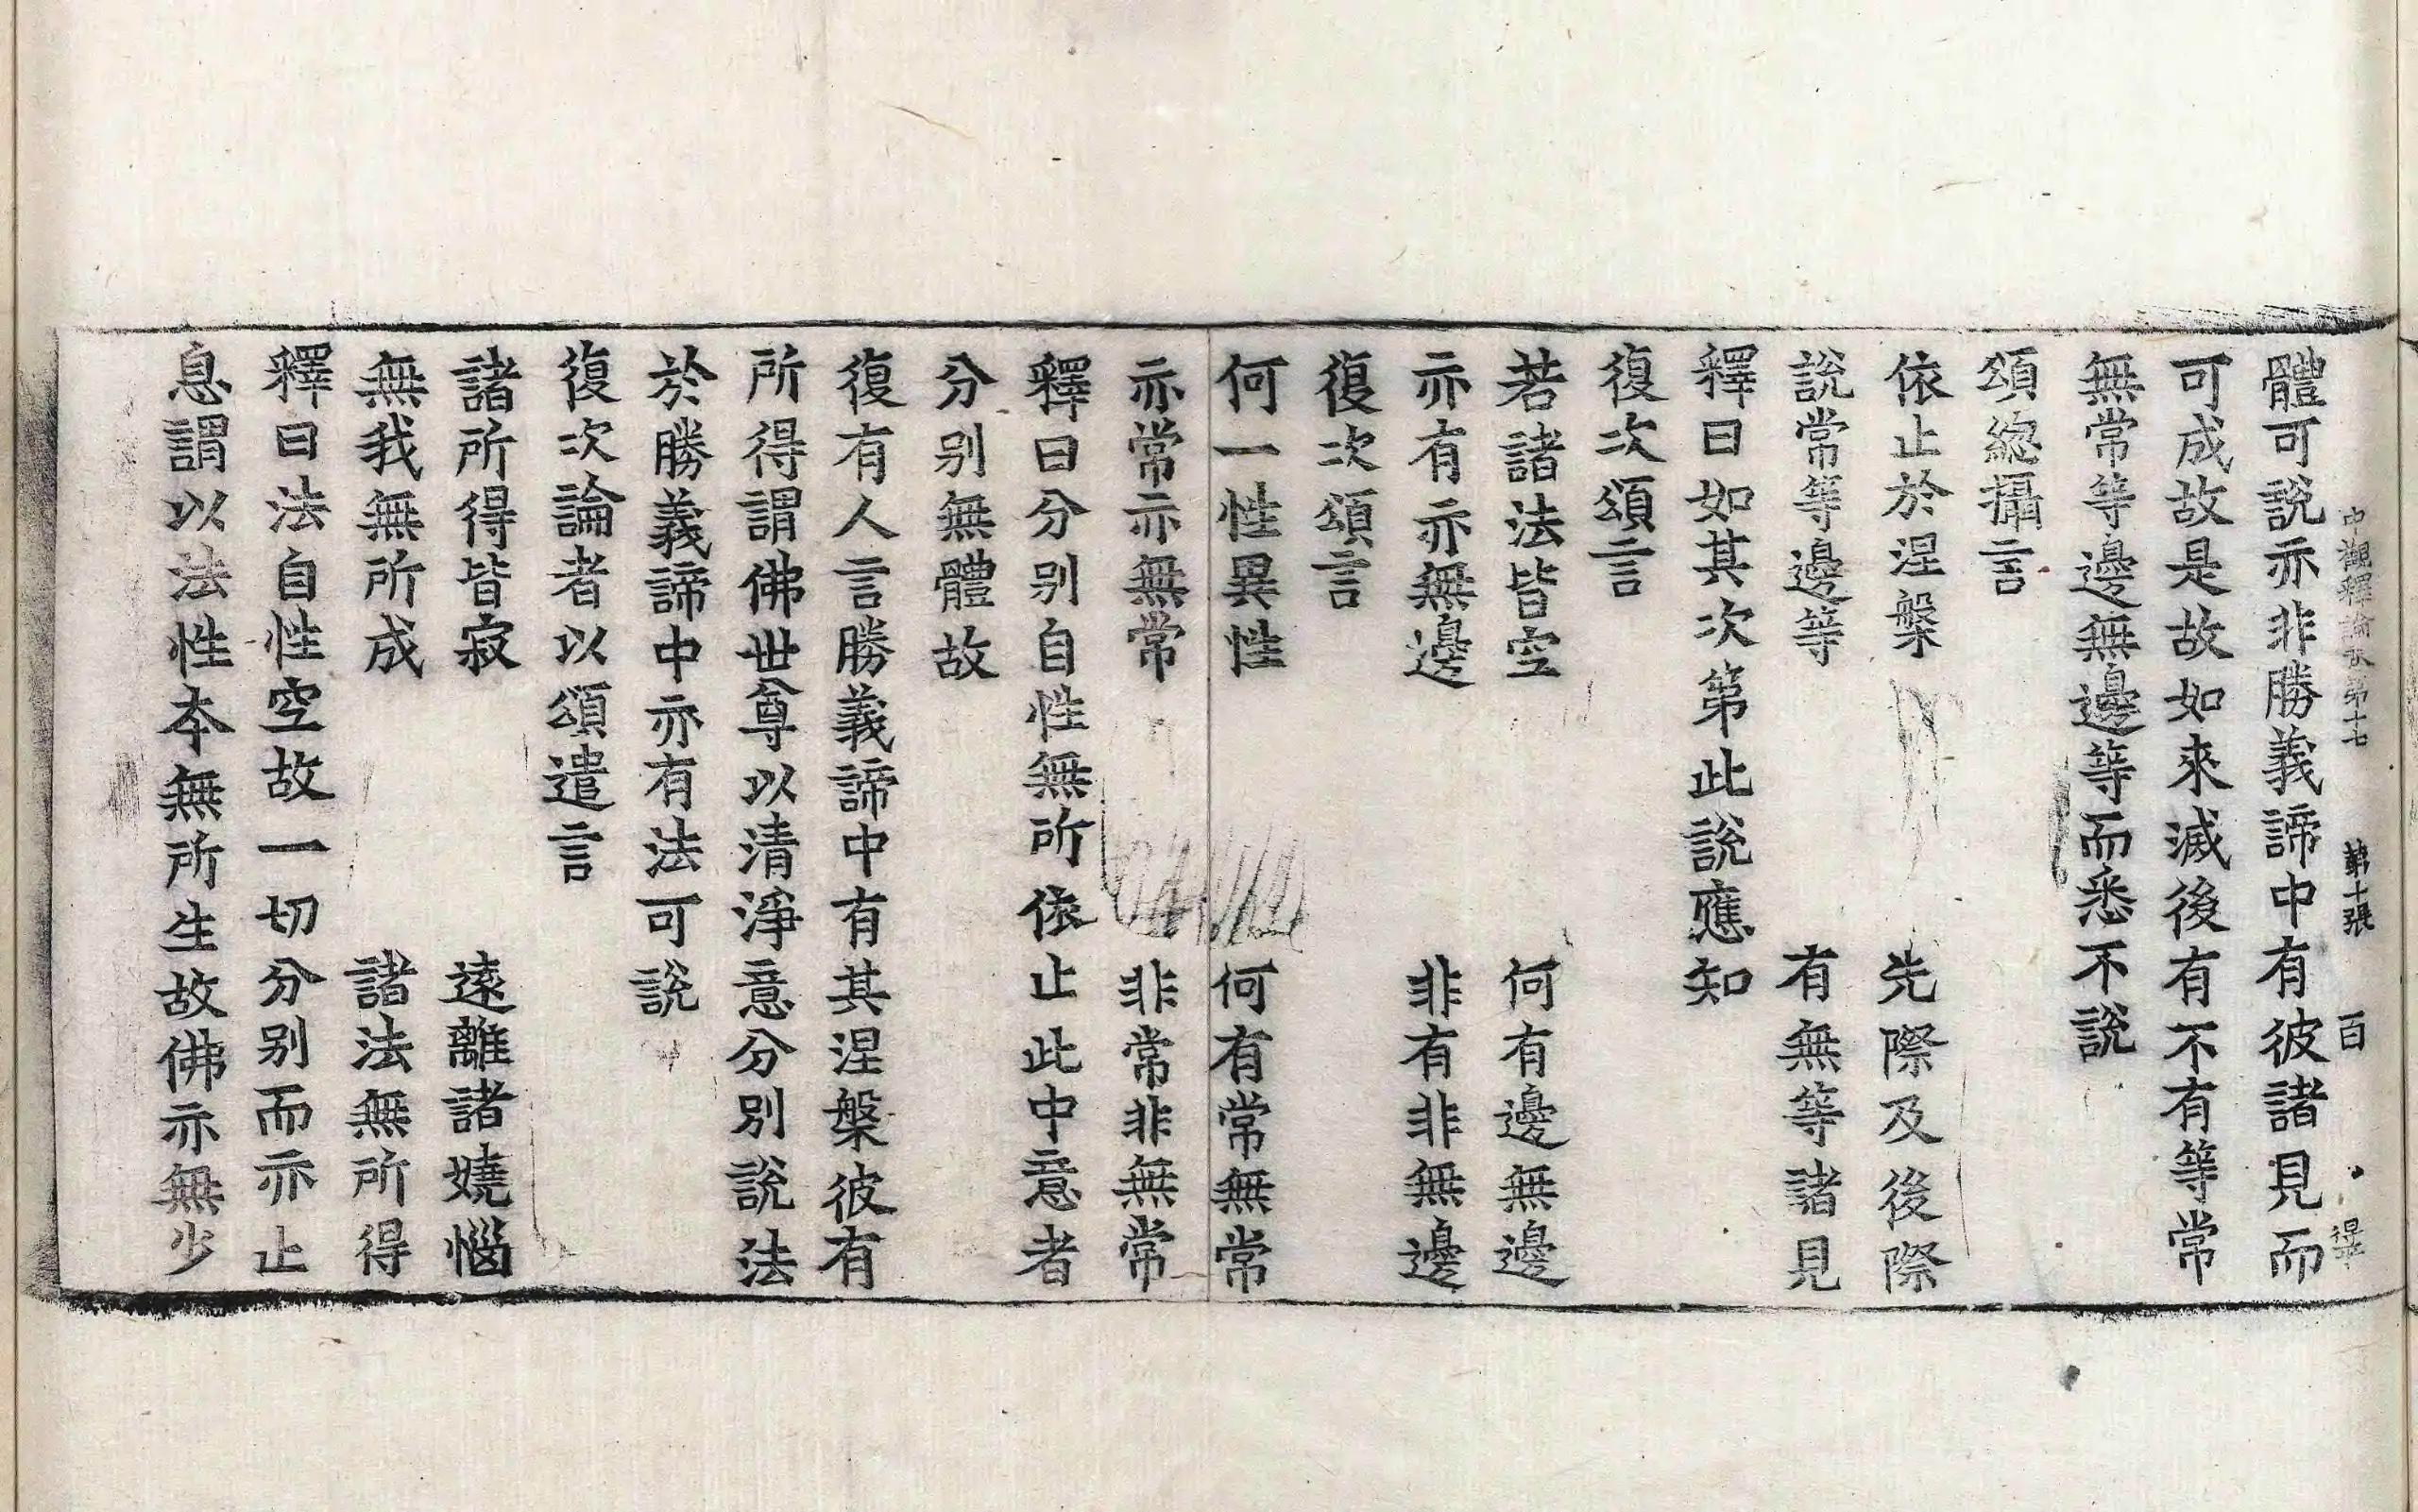 中觀釋論卷第十七 第十張 百
體可說亦非勝義諦中有彼諸見而
可成故是故如來滅後有不有等常
無常等邊無邊等而悉不說
頌緫攝言
依止於涅槃 先際及後際
說常等邊等 有無等諸見
釋曰如其次第此說應知
復次頌言
若諸法皆空 何有邊無邊
亦有亦無邊 非有非無邊
復次頌言
何一性異性 何有常無常
亦常亦無常 非常非無常
釋曰分别自性無所依止此中意者
分别無體故
復有人言勝義諦中有其涅槃彼有
所得謂佛世尊以清淨意分別說法
於勝義諦中亦有法可說
復次論者以頌遣言
諸所得皆寂 遠離諸嬈惱
無我無所成 諸法無所得
釋曰法自性空故一切分别而亦止
息謂以法性本無所生故佛亦無少